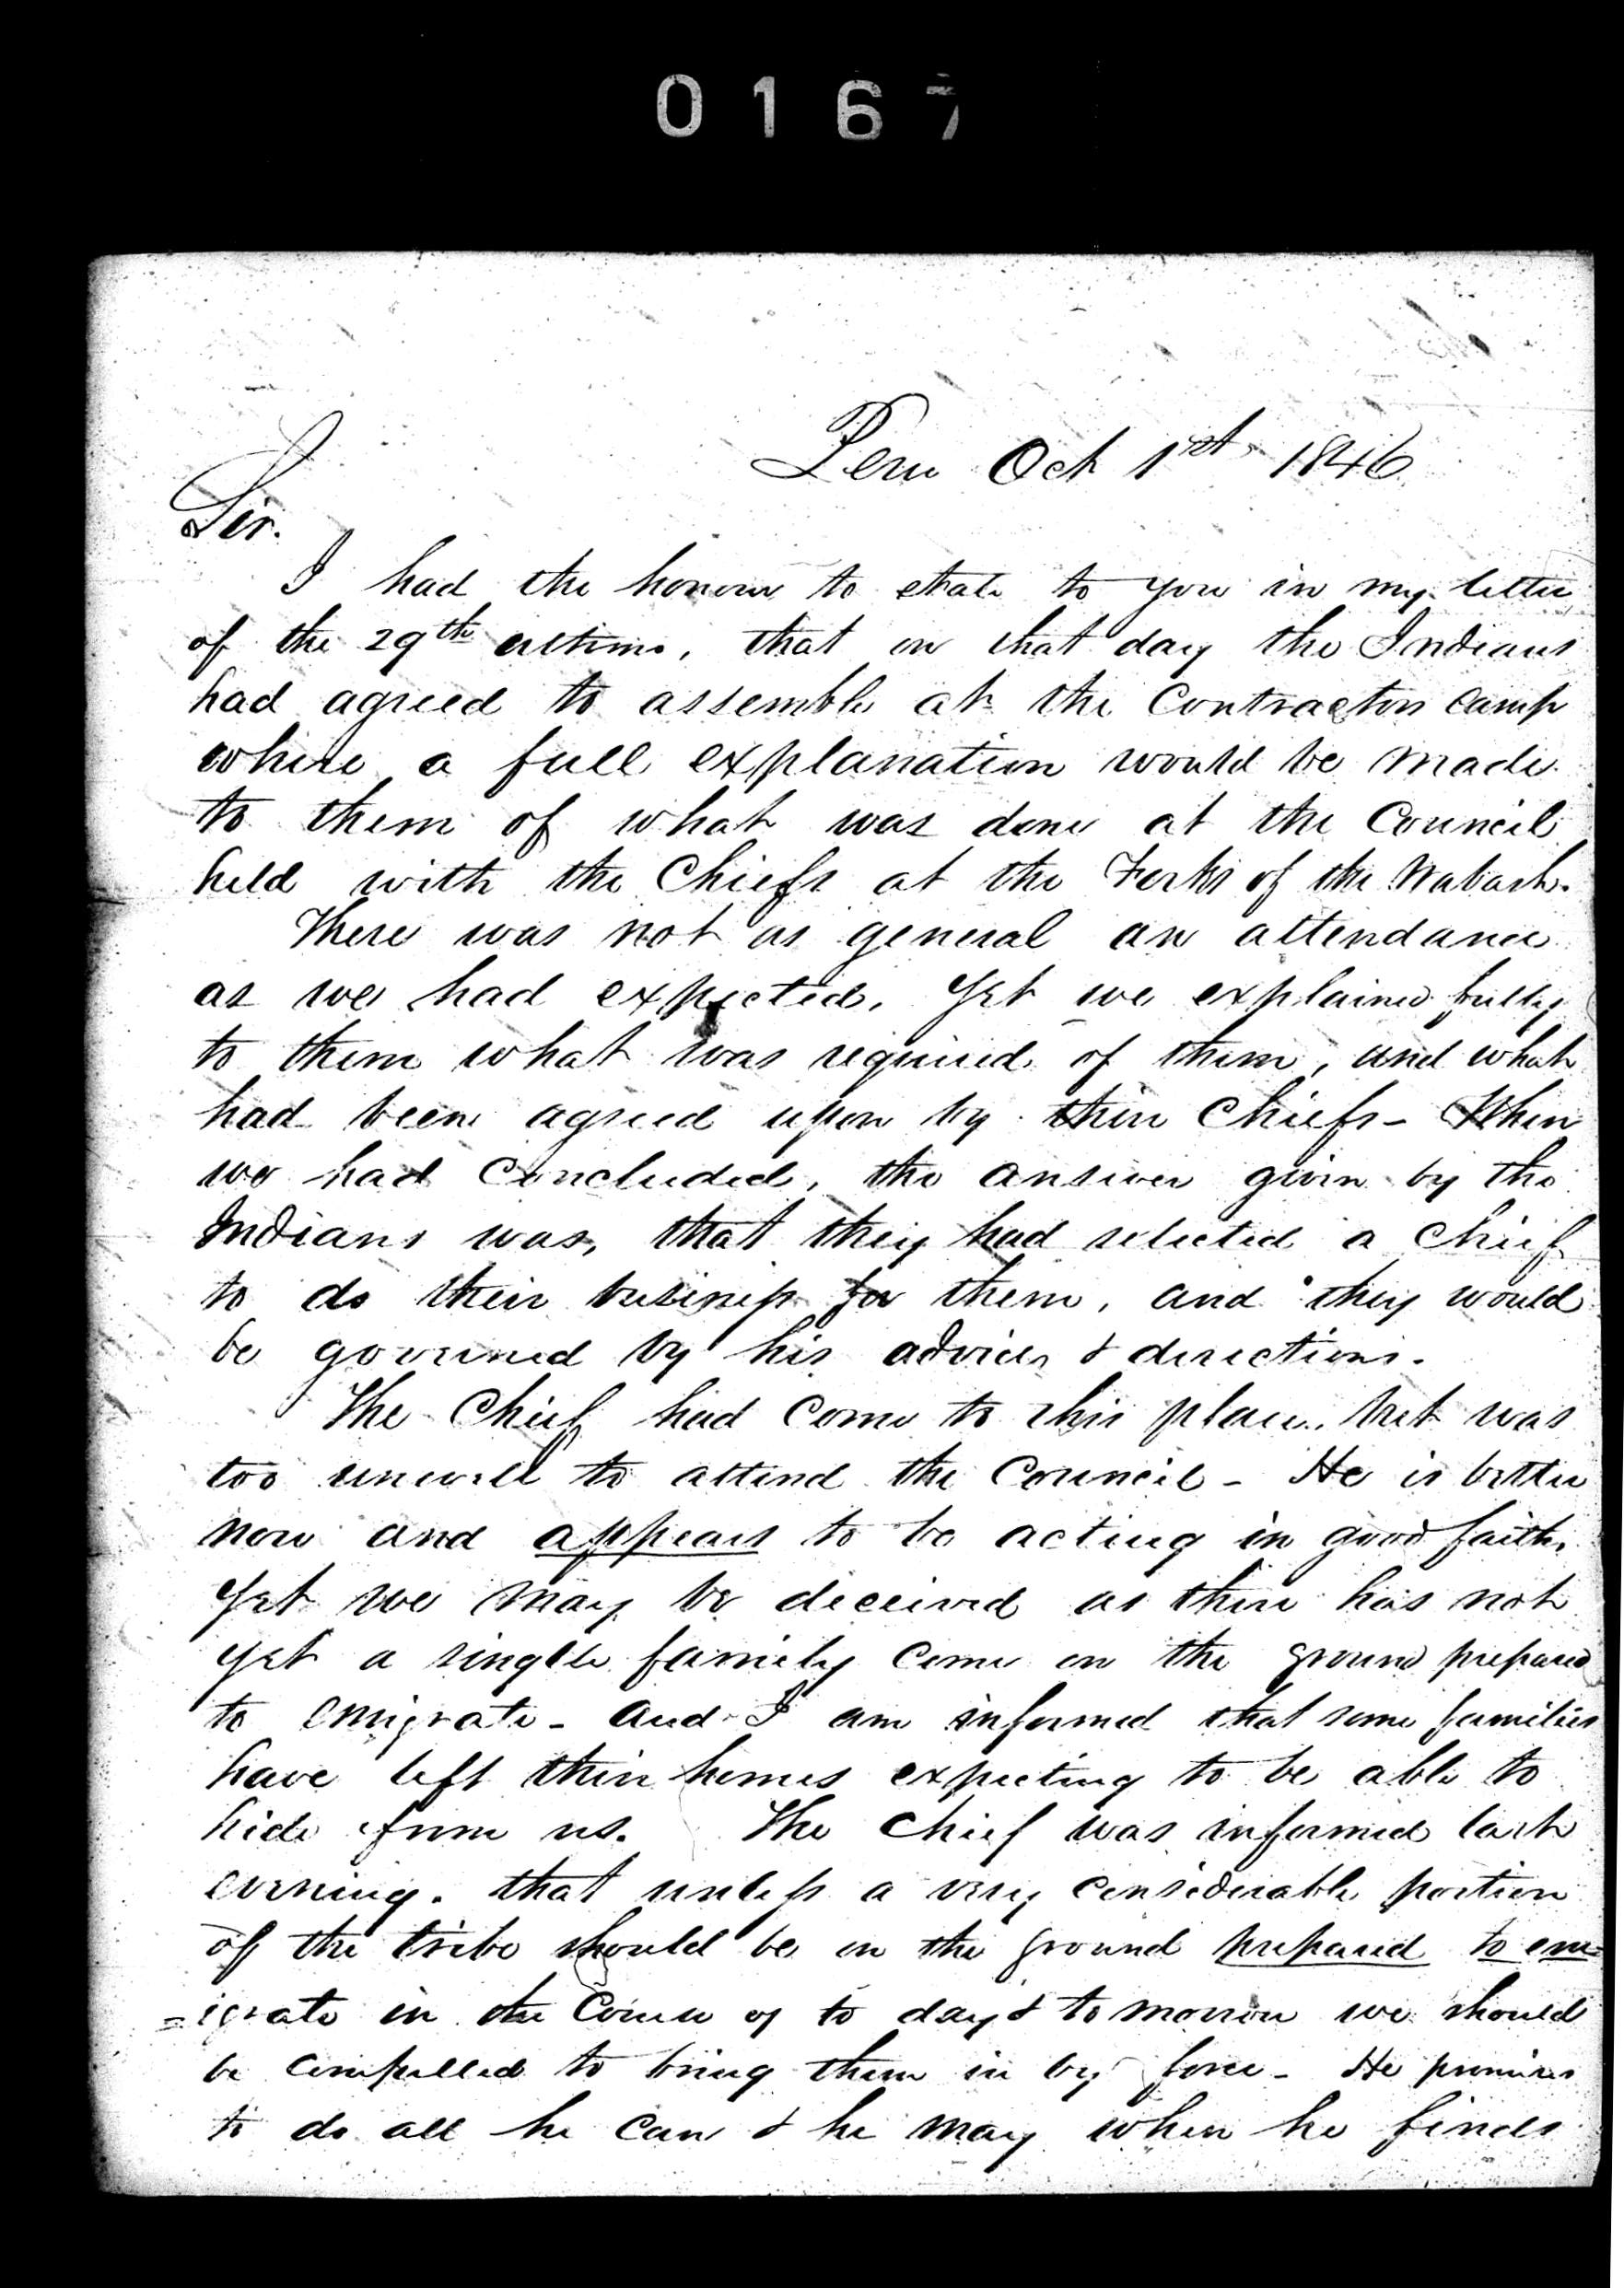 0167
Peru Oct 1st 1846
Sir.
I had the honour to state to you in my letter
of the 29th ultimo, that on that day the Indians
had agreed to assemble at the Contractors camp
where a full explanation would be made
to them of what was done at the Council
held with the Chiefs at the Forks of the Wabash.
There was not as general an attendance
as we had expected, Yet we explained fully
to them what was required of them, and what
had been agreed upon by their Chiefs - When
we had concluded, the answer given by the
Indians was, that they had selected a Chief
to do their business for them, and they would
be governed by his advices & directions.
The Chief had come to this place, but was
too unwell to attend the Council - He is better
now and appears to be acting in good faith,
Yet we may be deceived as there has not
yet a single family come on the ground prepared
to emigrate - and I am informed that some families
have left their homes expecting to be able to
hide from us. The Chief was informed last
evening. that unless a very considerable portion
of the tribe should be on the ground prepared to em=
=igrate in the Course of to day & tomorrow we should
be compelled to bring them in by force - He promises
to do all he can & he may when he finds